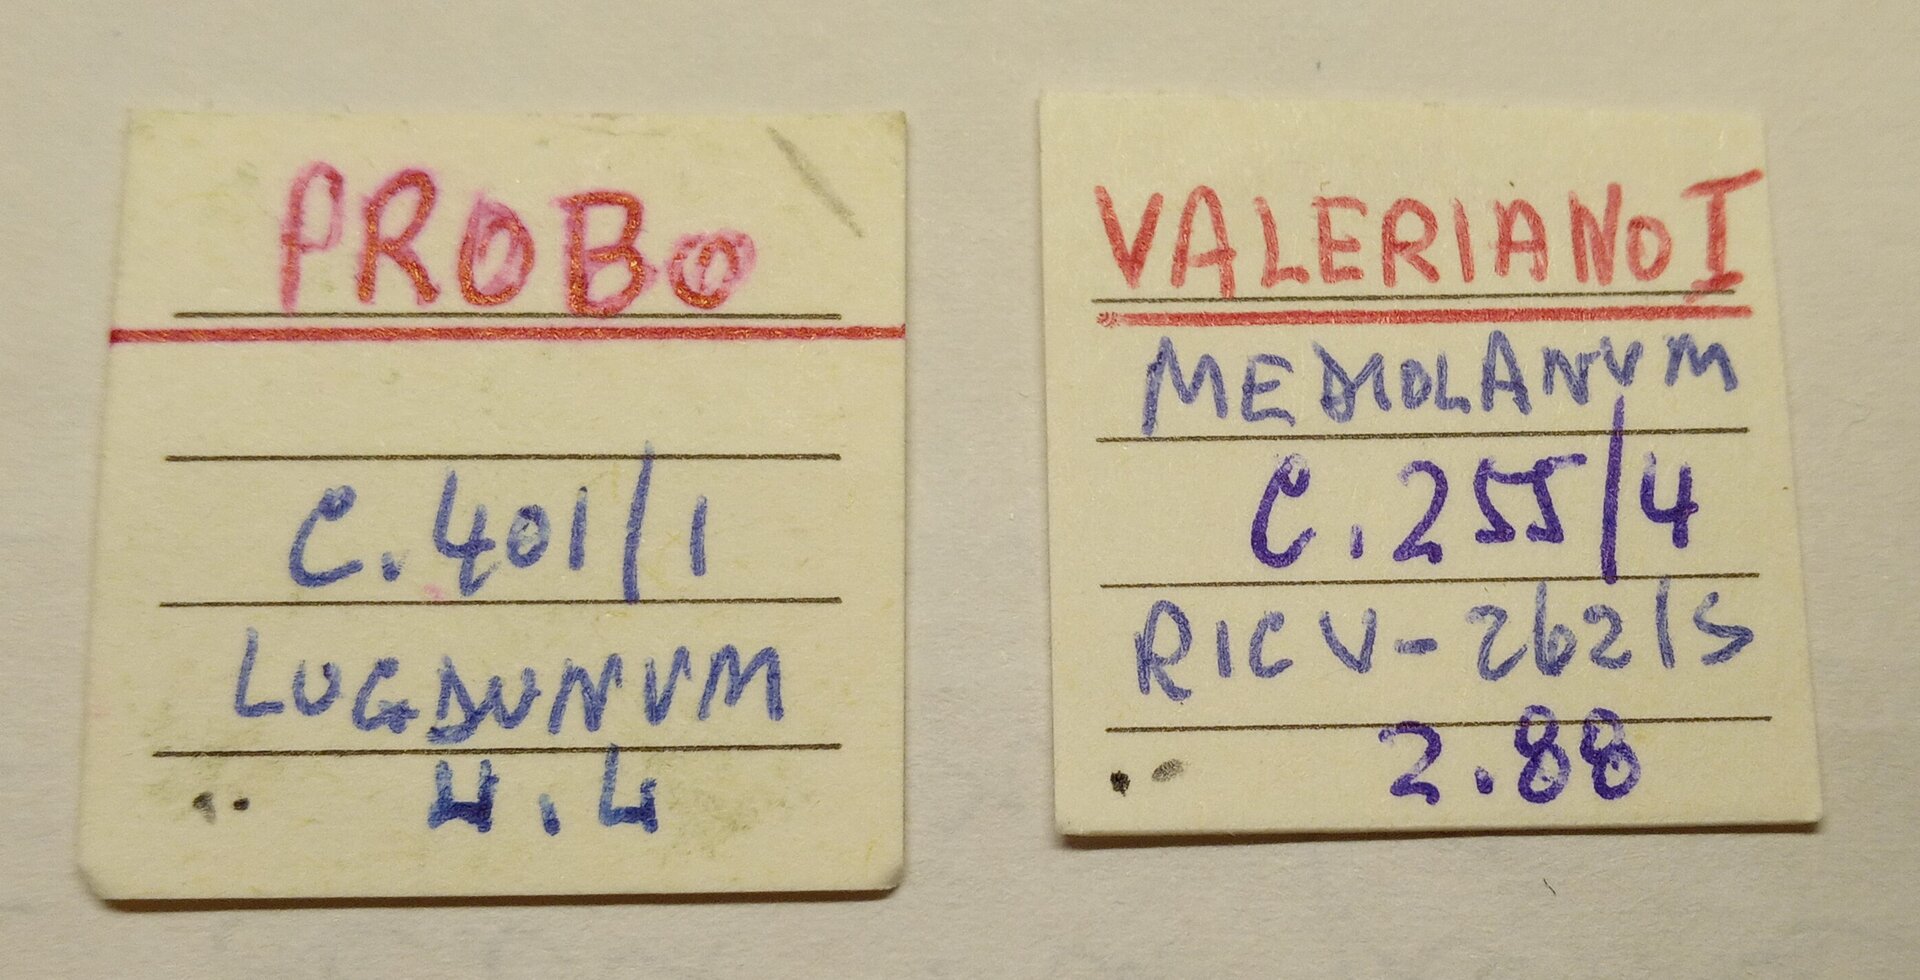 PROBO
C.401/1
LUGDUNUM
4.4
VALERIANO I
MEDIOLANVM
C.255/4
RIC V-262/S
2.88